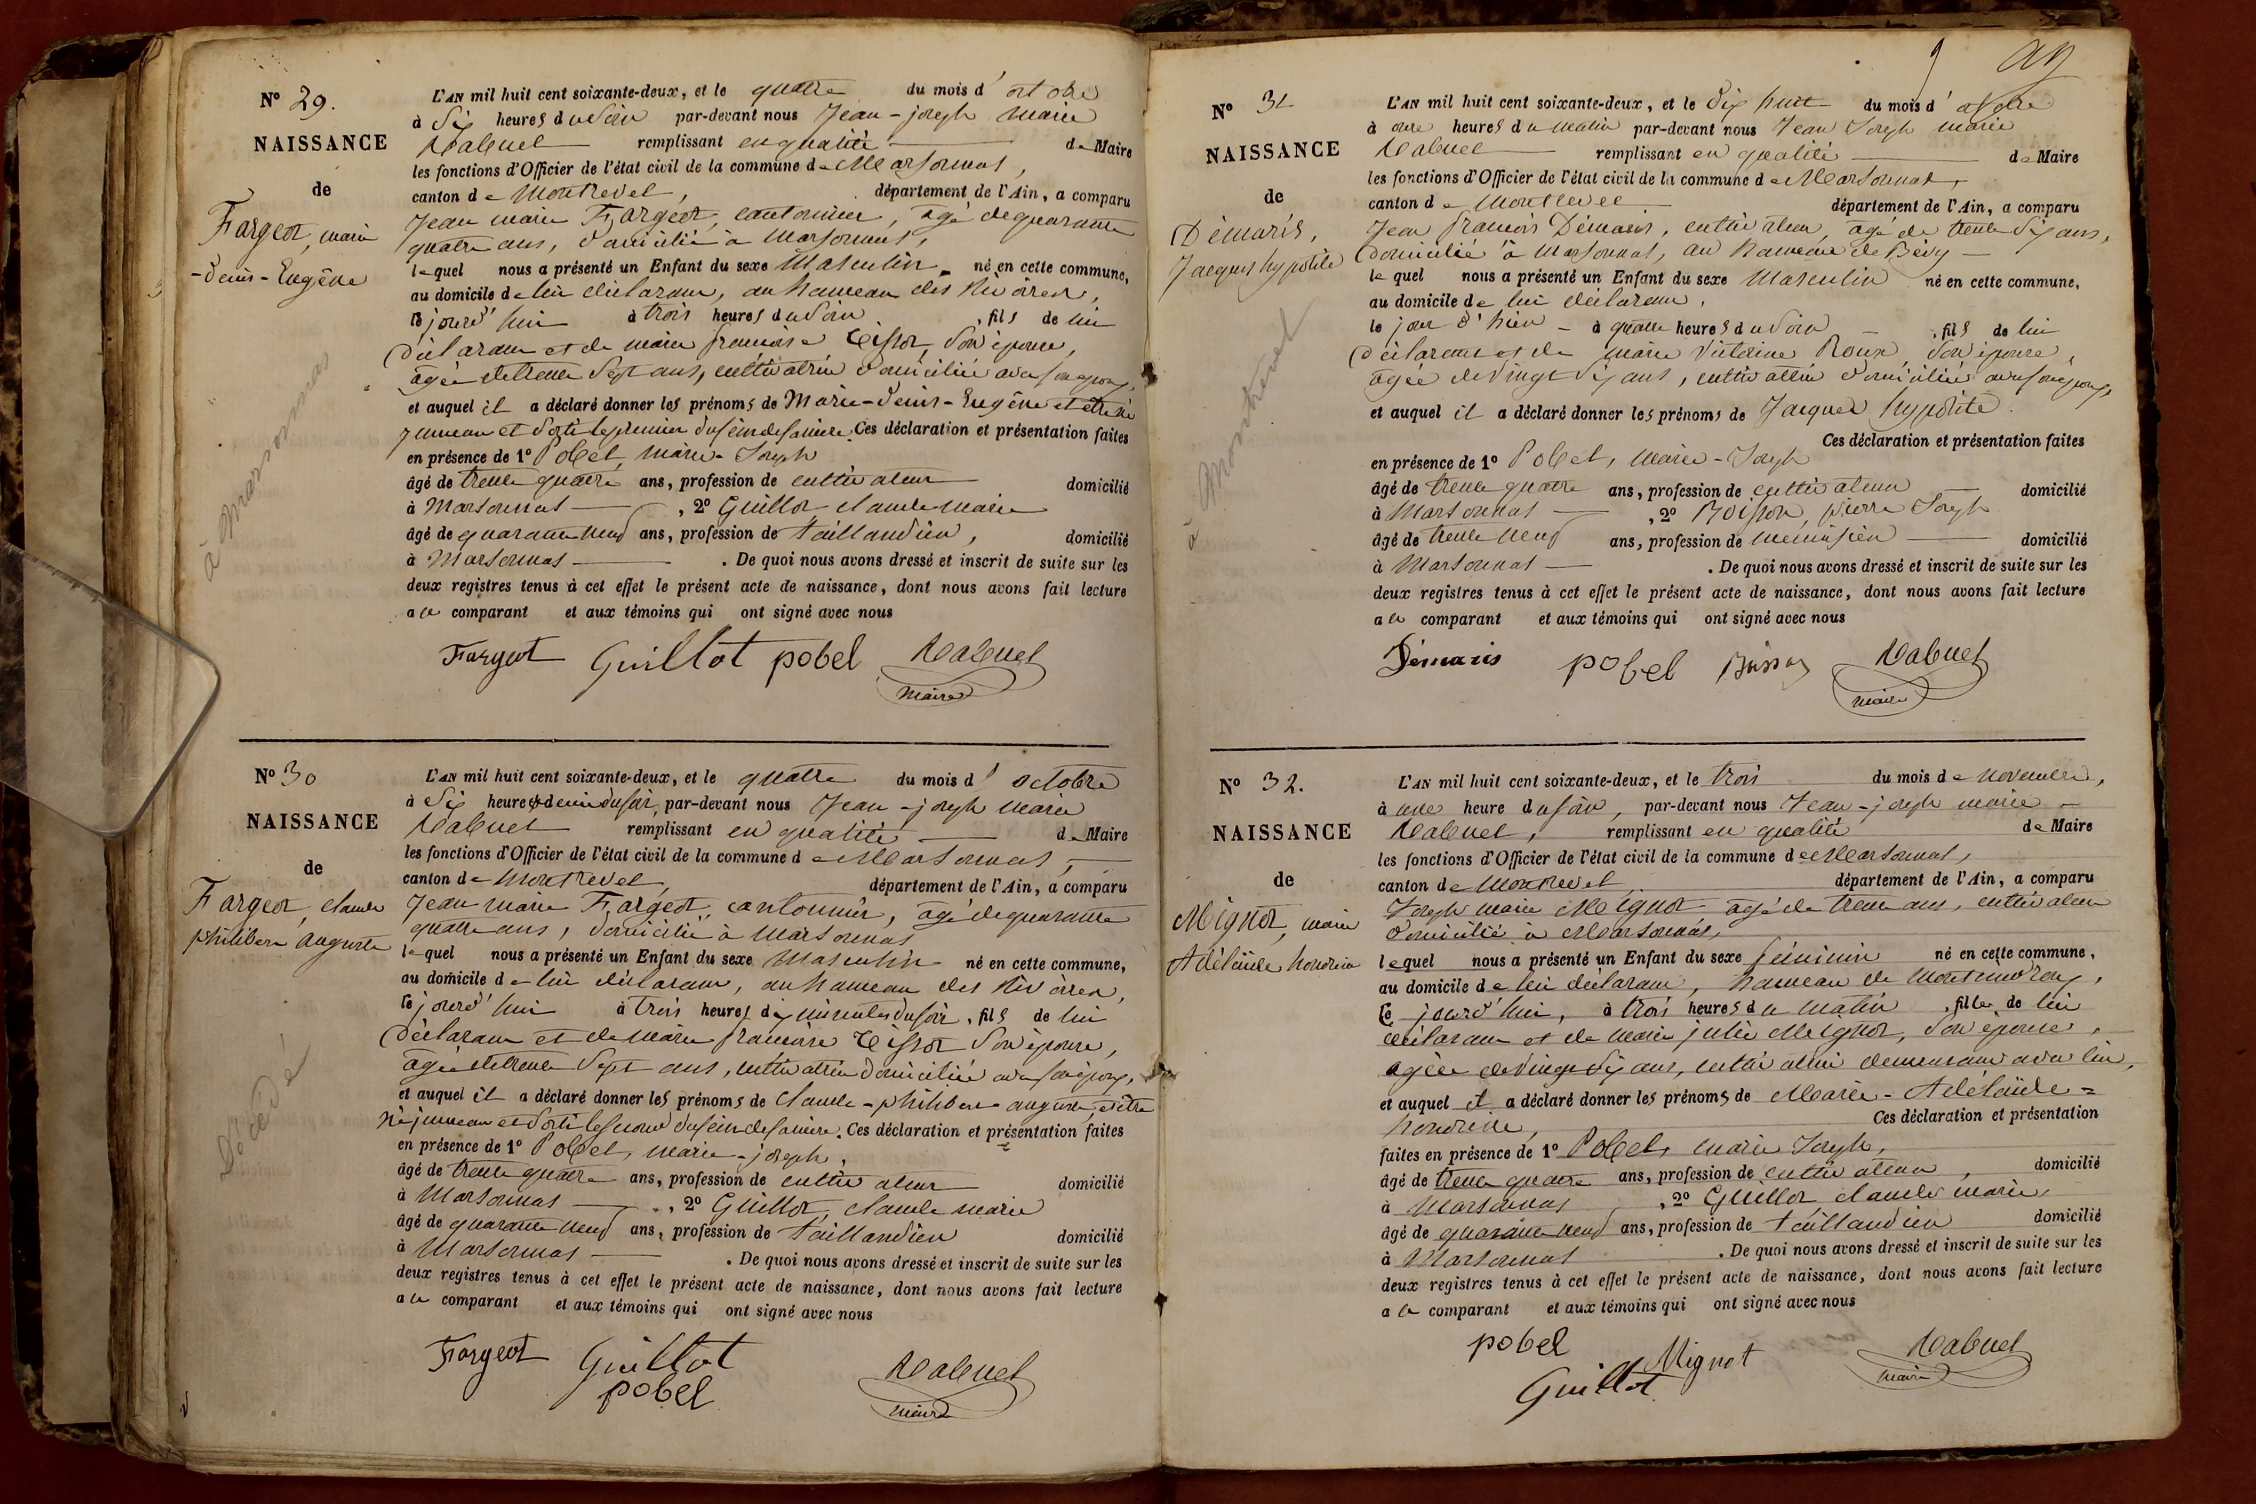 N° 29.
NAISSANCE
de
Fargeot, marie
-denis-Eugène
à marsonnas
L'AN mil huit cent soixante-deux, et le quatre du mois d'octobre
à Six heures du Soir par-devant nous Jean-joseph marie
remplissant en qualité de Maire
les fonctions d'Officier de l'état civil de la commune de Marsonnas,
canton de Montrevel, département de l'Ain, a comparu
Jean marie Fargeot, cantonnier, âgé de quarante
quatre ans, domicilié à Marsonnas,
lequel nous a présenté un Enfant du sexe Masculin né en cette commune,
au domicile de lui déclarant, au hameau des
ce jourd'hui à trois heures du Soir, fils de lui
Déclarant et de marie françoise Tissot, Son épouse,
âgée de trente Sept ans, cultivatrice domiciliée avec son époux,
et auquel il a déclaré donner les prénoms de Marie-denis-Eugène et être né
jumeau et Sorti le premier du sein de sa mère. Ces déclaration et présentation faites
en présence de 1° Pobel, marie-Joseph
âgé de trente quatre ans, profession de cultivateur domicilié
à Marsonnas, 2° Guillot, claude marie
âgé de quarante neuf ans, profession de taillandier, domicilié
à Marsonnas. De quoi nous avons dressé et inscrit de suite sur les
deux registres tenus à cet effet le présent acte de naissance, dont nous avons fait lecture
au comparant et aux témoins qui ont signé avec nous
Fargeot Guillot pobel
maire
N° 30
NAISSANCE
de
Fargeot, claude
philibert auguste
Décédé
L'AN mil huit cent soixante-deux, et le quatre du mois d'octobre
à Six heures et demie du soir, par-devant nous Jean-joseph marie
remplissant en qualité de Maire
les fonctions d'Officier de l'état civil de la commune de Marsonnas,
canton de Montrevel, département de l'Ain, a comparu
Jean marie Fargeot, cantonnier, âgé de quarante
quatre ans, domicilié à Marsonnas
lequel nous a présenté un Enfant du sexe Masculin né en cette commune,
au domicile de lui déclarant, au hameau des
ce jourd'hui à trois heures dix minutes du soir, fils de lui
Déclarant et de marie françoise Tissot Son épouse,
âgée de trente Sept ans, cultivatrice domiciliée avec son époux,
et auquel il a déclaré donner les prénoms de claude-philibert auguste, et être
né jumeau et Sorti le second du sein de sa mère. Ces déclaration et présentation faites
en présence de 1° Pobel, marie-joseph,
âgé de trente quatre ans, profession de cultivateur domicilié
à Marsonnas, 2° Guillot, claude marie
âgé de quarante neuf ans, profession de taillandier domicilié
à Marsonnas. De quoi nous avons dressé et inscrit de suite sur les
deux registres tenus à cet effet le présent acte de naissance, dont nous avons fait lecture
au comparant et aux témoins qui ont signé avec nous
Fargeot Guillot
pobel
maire
N° 31
NAISSANCE
de
Démaris,
Jacques hypolite
à Montrevel
L'AN mil huit cent soixante-deux, et le Dix huit du mois d'octobre
à onze heures du matin par-devant nous Jean Joseph marie
remplissant en qualité de Maire
les fonctions d'Officier de l'état civil de la commune de Marsonnas,
canton de Montrevel département de l'Ain, a comparu
Jean françois Démaris, cultivateur, âgé de trente Six ans,
Domicilié à Marsonnas, au hameau de
lequel nous a présenté un Enfant du sexe Masculin né en cette commune,
au domicile de lui déclarant,
le jour d'hier à quatre heures du Soir, fils de lui
Déclarant et de marie Victorine Roux, Son épouse,
âgée de vingt Six ans, cultivatrice domiciliée avec son époux,
et auquel il a déclaré donner les prénoms de Jacques hypolite.
Ces déclaration et présentation faites
en présence de 1° Pobel, marie-Joseph
âgé de trente quatre ans, profession de cultivateur domicilié
à Marsonnas, 2° Boisson, pierre Joseph
âgé de trente neuf ans, profession de menuisier domicilié
à Marsonnas. De quoi nous avons dressé et inscrit de suite sur les
deux registres tenus à cet effet le présent acte de naissance, dont nous avons fait lecture
au comparant et aux témoins qui ont signé avec nous
Démaris pobel
maire
N° 32.
NAISSANCE
de
Mignot, marie
Adélaïde
L'AN mil huit cent soixante-deux, et le trois du mois de novembre,
à une heure du soir, par-devant nous Jean-joseph marie
remplissant en qualité de Maire
les fonctions d'Officier de l'état civil de la commune de Marsonnas,
canton de Montrevel département de l'Ain, a comparu
Joseph marie Mignot âgé de trente ans, cultivateur
domicilié à Marsonnas,
lequel nous a présenté un Enfant du sexe féminin né en cette commune,
au domicile de lui déclarant, hameau de
ce jourd'hui, à trois heures du matin, fille de lui
déclarant et de marie julie Mignot, Son épouse,
âgée de vingt Six ans, cultivatrice demeurant avec lui,
et auquel il a déclaré donner les prénoms de Marie-Adélaïde=
Ces déclaration et présentation
faites en présence de 1° Pobel, marie Joseph,
âgé de trente quatre ans, profession de cultivateur, domicilié
à Marsonnas, 2° Guillot, claude marie,
âgé de quarante neuf ans, profession de taillandier domicilié
à Marsonnas. De quoi nous avons dressé et inscrit de suite sur les
deux registres tenus à cet effet le présent acte de naissance, dont nous avons fait lecture
au comparant et aux témoins qui ont signé avec nous
pobel Mignot
Guillot
maire